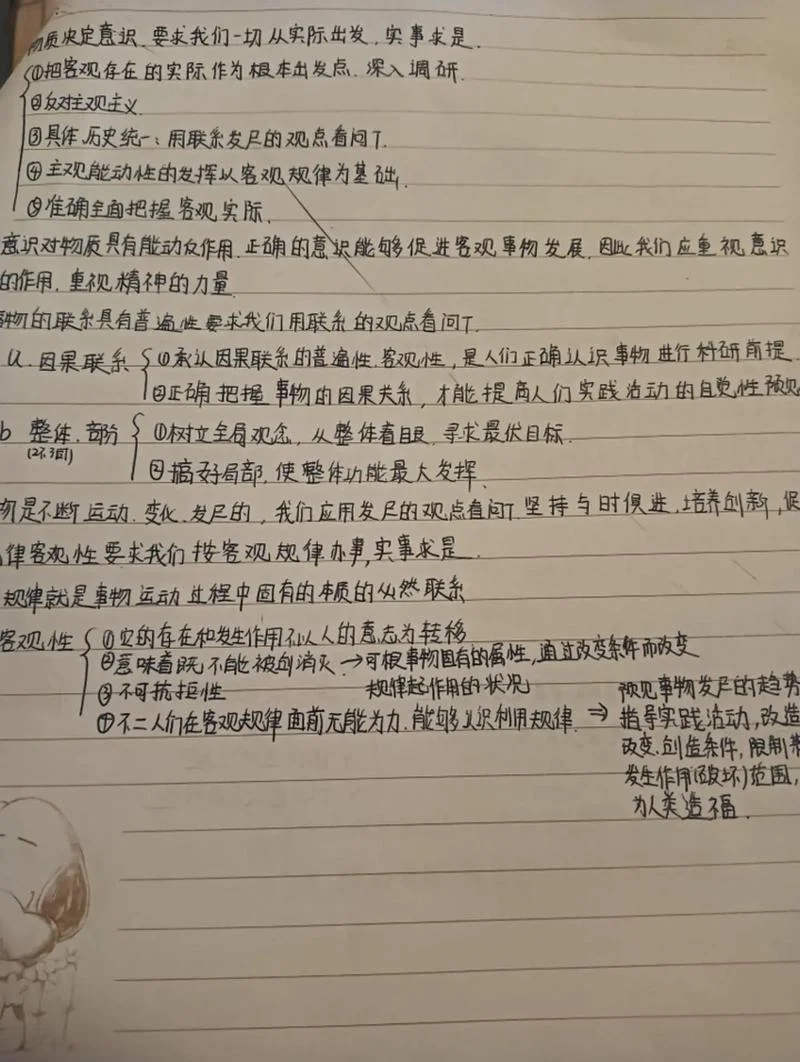 物质决定意识.要求我们一切从实际出发,实事求是.
①把客观存在的实际作为根本出发点.深入调研.
②反对主观主义
③具体历史统一:用联系发尸的观点看问T.
④主观能动性的发挥以客观规律为基础.
⑤准确全面把握客观实际.
意识对物质具有能动反作用.正确的意识能够促进客观事物发展,因此我们应重视意识
的作用,重视精神的力量.
事物的联系具有普遍性要求我们用联系的观点看问T.
a.因果联系 ①承认因果联系的普遍性.客观性,是人们正确认识事物进行科研前提.
②正确把握事物的因果关系,才能提高人们实践活动的自觉性预见
b 整体.部分 ①树立全局观念,从整体着眼,寻求最优目标.
②搞好局部,使整体功能最大发挥.
物是不断运动.变化.发尸的,我们应用发尸的观点看问T.坚持与时俱进,培养创新,促
律客观性要求我们按客观规律办事,实事求是.
规律就是事物运动过程中固有的本质的必然联系
客观性 ①它的存在和发生作用不以人的意志为转移
②意味着既不能被创消灭.→可根事物固有的属性,通过改变条件而改变
规律起作用的状况
③不可抗拒性
④不二人们在客观规律面前无能为力.能够认识利用规律.⇒
预见事物发尸的趋势
指导实践活动,改造
改变.创造条件,限制
发生作用(破坏)范围,
为人类造福.